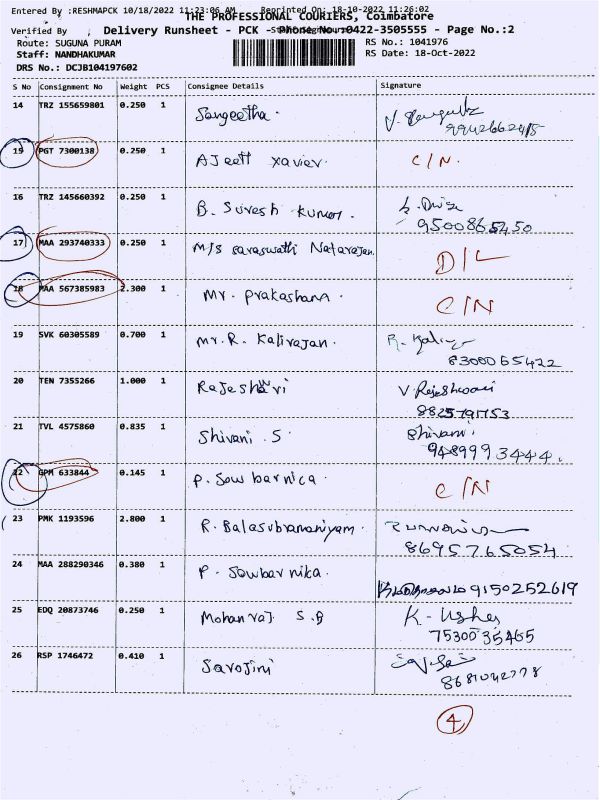 Entered By :RESHMAPCK 10/18/2022 11:23:06 AM Reprinted On: 18-10-2022 11:26:02
THE PROFESSIONAL COURIERS, Coimbatore
Verified By : Delivery Runsheet - PCK - Phone No.:0422-3505555 - Page No.:2
Route: SUGUNA PURAM RS No.: 1041976
Staff: NANDHAKUMAR RS Date: 18-Oct-2022
DRS No.: DCJB104197602
S No Consignment No Weight PCS Consignee Details Signature
14 TRZ 155659801 0.250 1 Sangeetha.
15 PGT 7300138 0.250 1 AJeeth xavier. C/N.
16 TRZ 145660392 0.250 1 B. Suresh kumar.
9500865450
17 MAA 293740333 0.250 1 M/s saraswathi Natarajan. D/L
18 MAA 567385983 2.300 1 Mr. prakashana. C/N
19 SVK 60305589 0.700 1 Mr. R. Kalirajan.
8300065422
20 TEN 7355266 1.000 1 Rajeshwri V. Rajeshwari
21 TVL 4575860 0.835 1 Shivani. S Shivani.
9489993444.
22 GPM 633844 0.145 1 P. Sowbarnica. C/N
23 PMK 1193596 2.800 1 R. Balasubramaniyam.
8695765054
24 MAA 288290346 0.380 1 P. Sowbarnika. 9150252619
25 EDQ 20873746 0.250 1 Mohanraj S.B K-Usha
7530035465
26 RSP 1746472 0.410 1 Sarojini
4